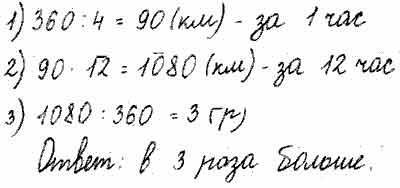 1) 360 : 4 = 90 (км) - за 1 час
2) 90 · 12 = 1080 (км) - за 12 час
3) 1080 : 360 = 3 гр)
Ответ: в 3 роза больше.